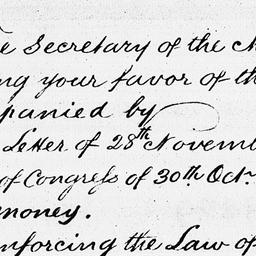 The Secretary of the
ing your favor of the
panied by
Letter of 28th Novem
of Congress of 30th Octr
money.
nforcing the Law of